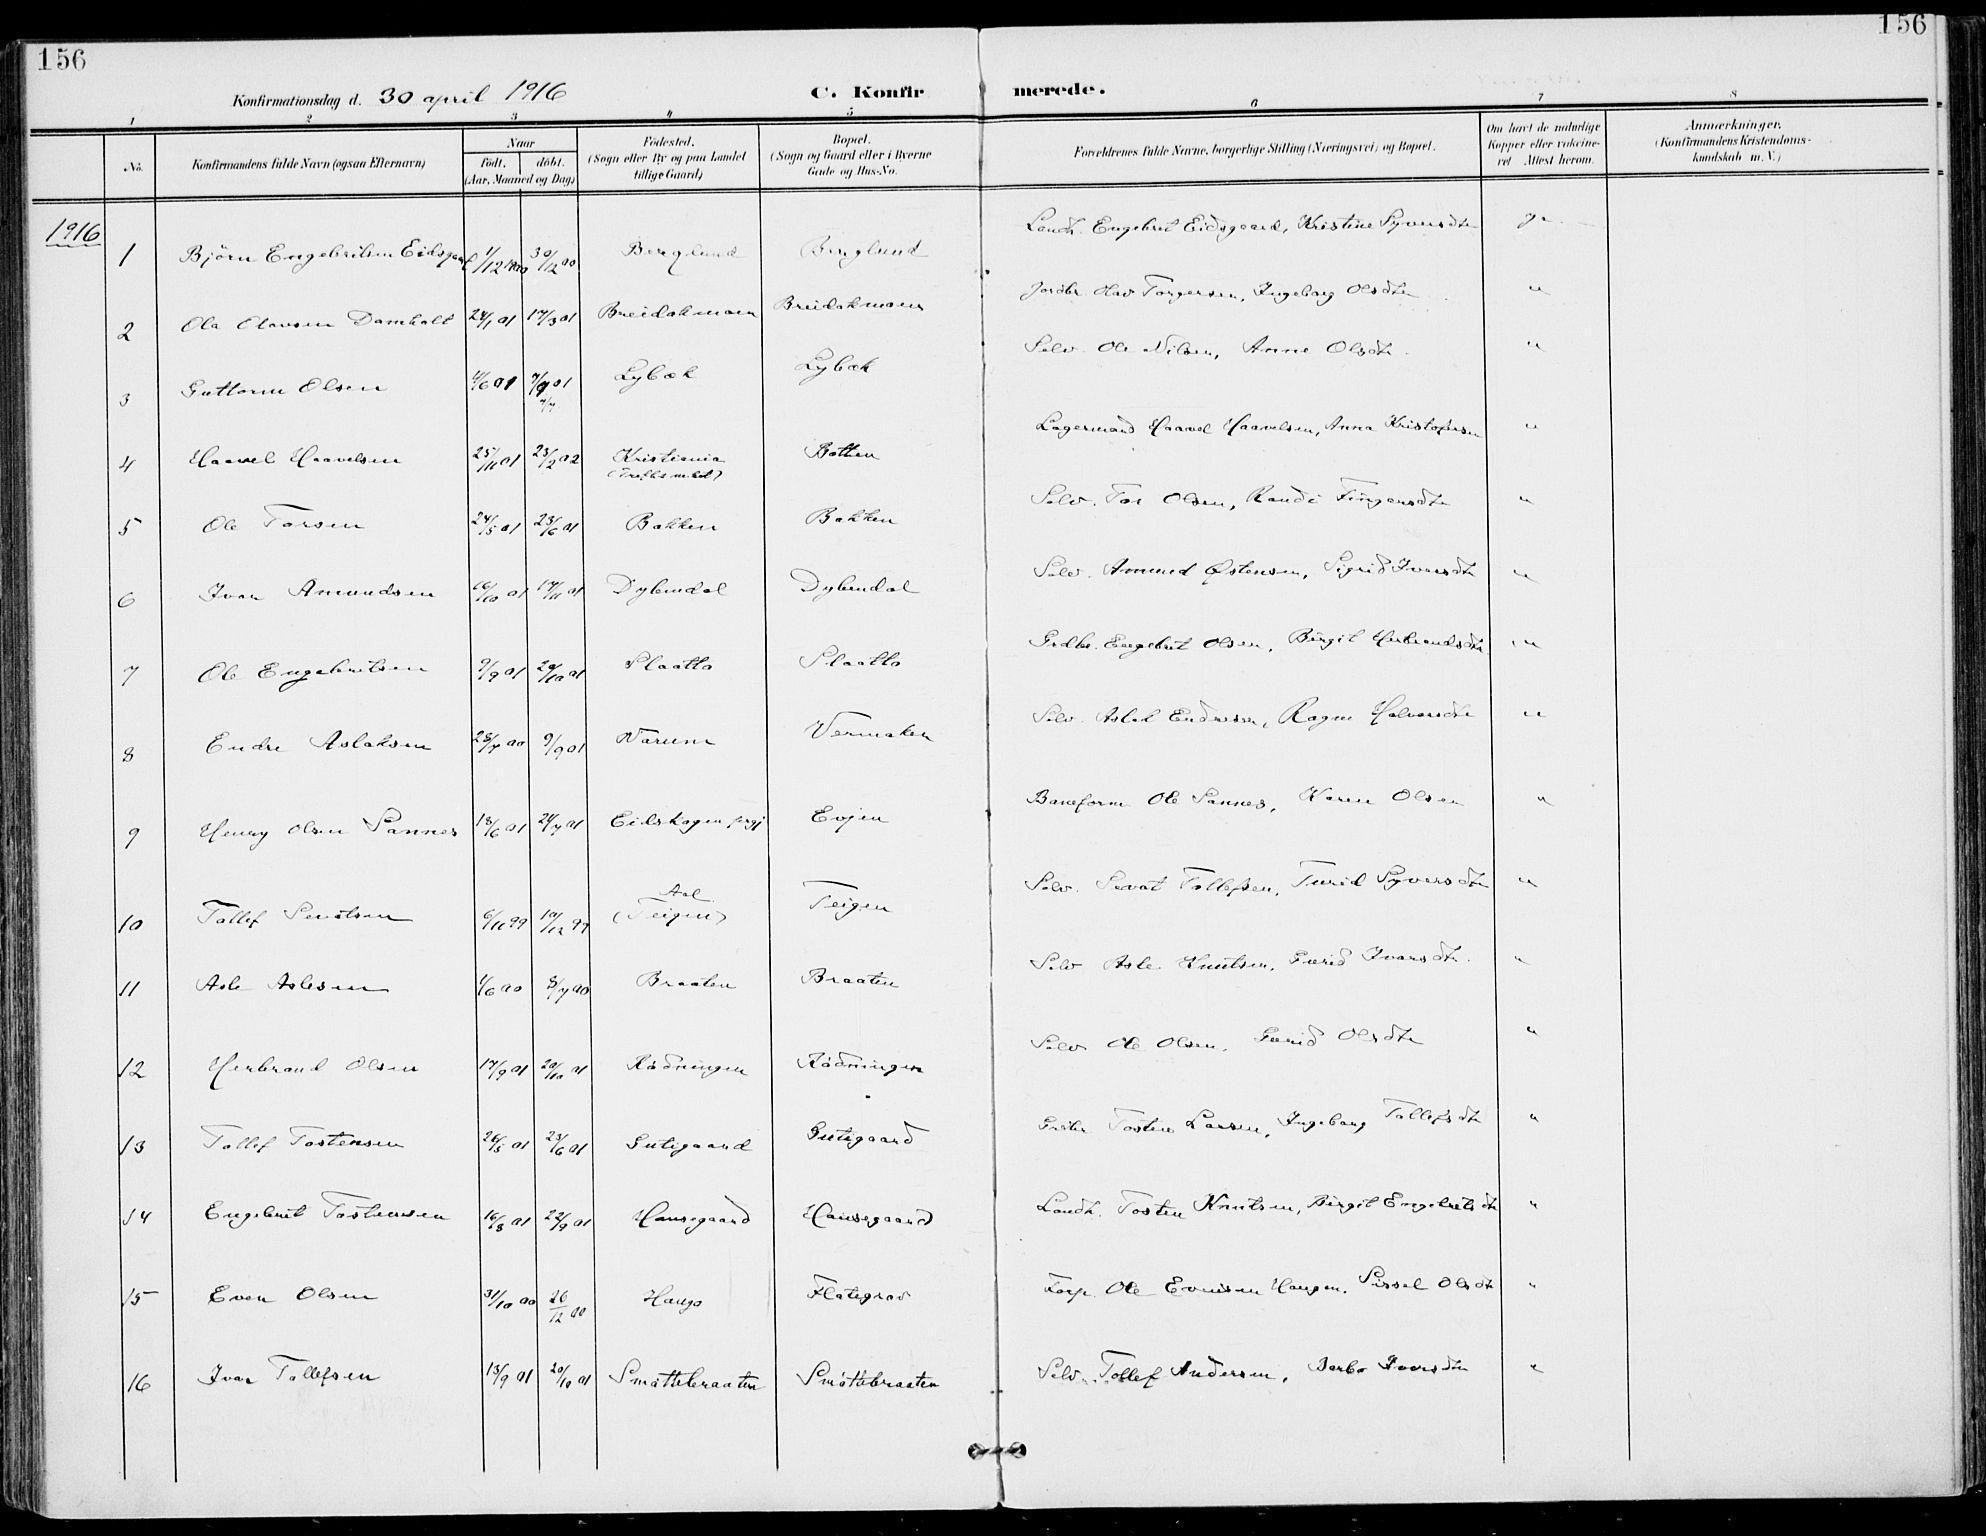 156
156
Konfirmationsdag d. 30 april 1916
C. Konfirmerede.
1 2 3 4 5 6 7 8
No.
Konfirmandens fulde Navn (ogsaa Efternavn)
Naar
födt. döbt.
(Aar, Maaned og Dag)
Födested.
(Sogn eller By og paa Landet
tillige Gaard)
Bopæl.
(Sogn og Gaard eller i Byerne
Gade og Hus-No.
Forældrenes fulde Navne, borgerlige Stilling (Næringsvei) og Bopæl.
Om havt de naturlige
Kopper eller vakcine-
ret Attest herom.
Anmærkninger.
(Konfirmandens Kristendoms-
kundskab m. V.)
1916
1 Björn Engebritsen Eidsgaard 1/12 1900 30/12 00 Berglund Berglund Landh. Engebret Eidsgaard, Kristine Syversdtr ja
2 Ola Olavsen Damholt 24/1 01 17/3 01 Breidokmoen Breidokmoen Jordbr. Olav Torgersen, Ingeborg Olsdtr "
3 Guttorm Olsen 4/6 01 7/7 01 Lybæk Lybæk Selv. Ole Nilsen, Anne Olsdtr. "
4 Haavel Haavelsen 25/11 01 23/2 02 Kristiania Botten Lagermand Haavel Haavelsen, Anna Kristofersen "
5 Ole Torsen 24/5 01 23/6 01 Bakken Bakken Selv. Tor Olsen, Randi Fingersdtr "
6 Ivar Amundsen 16/10 01 17/11 01 Dybendal Dybendal Selv. Amund Østensen, Sigrid Ivarsdtr "
7 Ole Engebritsen 9/9 01 20/10 01 Slaatto Slaatto Grdbr. Engebret Olsen, Birgit Herbrandsdtr "
8 Endre Aslaksen 28/7 00 9/9 01 Warum Vermaken Selv. Aslak Endresen, Ragne Halvorsdtr "
9 Henry Olsen Sannes 18/6 01 24/7 01 Eidskogen prgj Evjen Baneform Ole Sannes, Karen Olsen "
10 Tollef Sevatsen 6/11 99 10/12 99 Aal (Teigen) Teigen Selv. Sevat Tollefsen, Turid Syversdtr "
11 Asle Aslesen 1/6 00 8/7 00 Braaten Braaten Selv Asle Knutsen, Gurid Ivarsdtr. "
12 Herbrand Olsen 17/9 01 20/10 01 Rødningen Rødningen Selv Ole Olsen, Gurid Olsdtr "
13 Tollef Tostensen 26/5 01 23/6 01 Gutegaard Gutegaard Grdbr Tosten Larsen, Ingeborg Tollefsdtr "
14 Engebret Tostensen 16/8 01 22/9 01 Hansegaard Hansegaard Landh. Tosten Knutsen, Birgit Engebretsdtr "
15 Even Olsen 31/10 00 26/12 00 Haugo Flategrav Forp. Ole Evensen Haugen, Sissel Olsdtr "
16 Ivar Tollefsen 13/9 01 20/10 01 Smøttebraaten Smøttebraaten Selv. Tollef Andersen, Barbo Ivarsdtr "